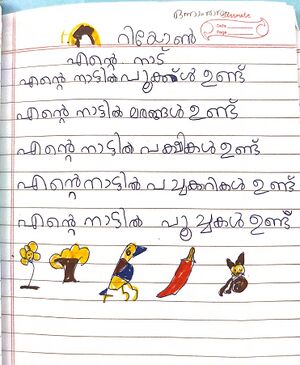 റിയോൺ
എന്റെ നാട്
എന്റെ നാട്ടിൽ പൂക്കൾ ഉണ്ട്
എന്റെ നാട്ടിൽ മരങ്ങൾ ഉണ്ട്
എന്റെ നാട്ടിൽ പക്ഷികൾ ഉണ്ട്
എന്റെ നാട്ടിൽ പച്ചക്കറികൾ ഉണ്ട്
എന്റെ നാട്ടിൽ പൂച്ചകൾ ഉണ്ട്